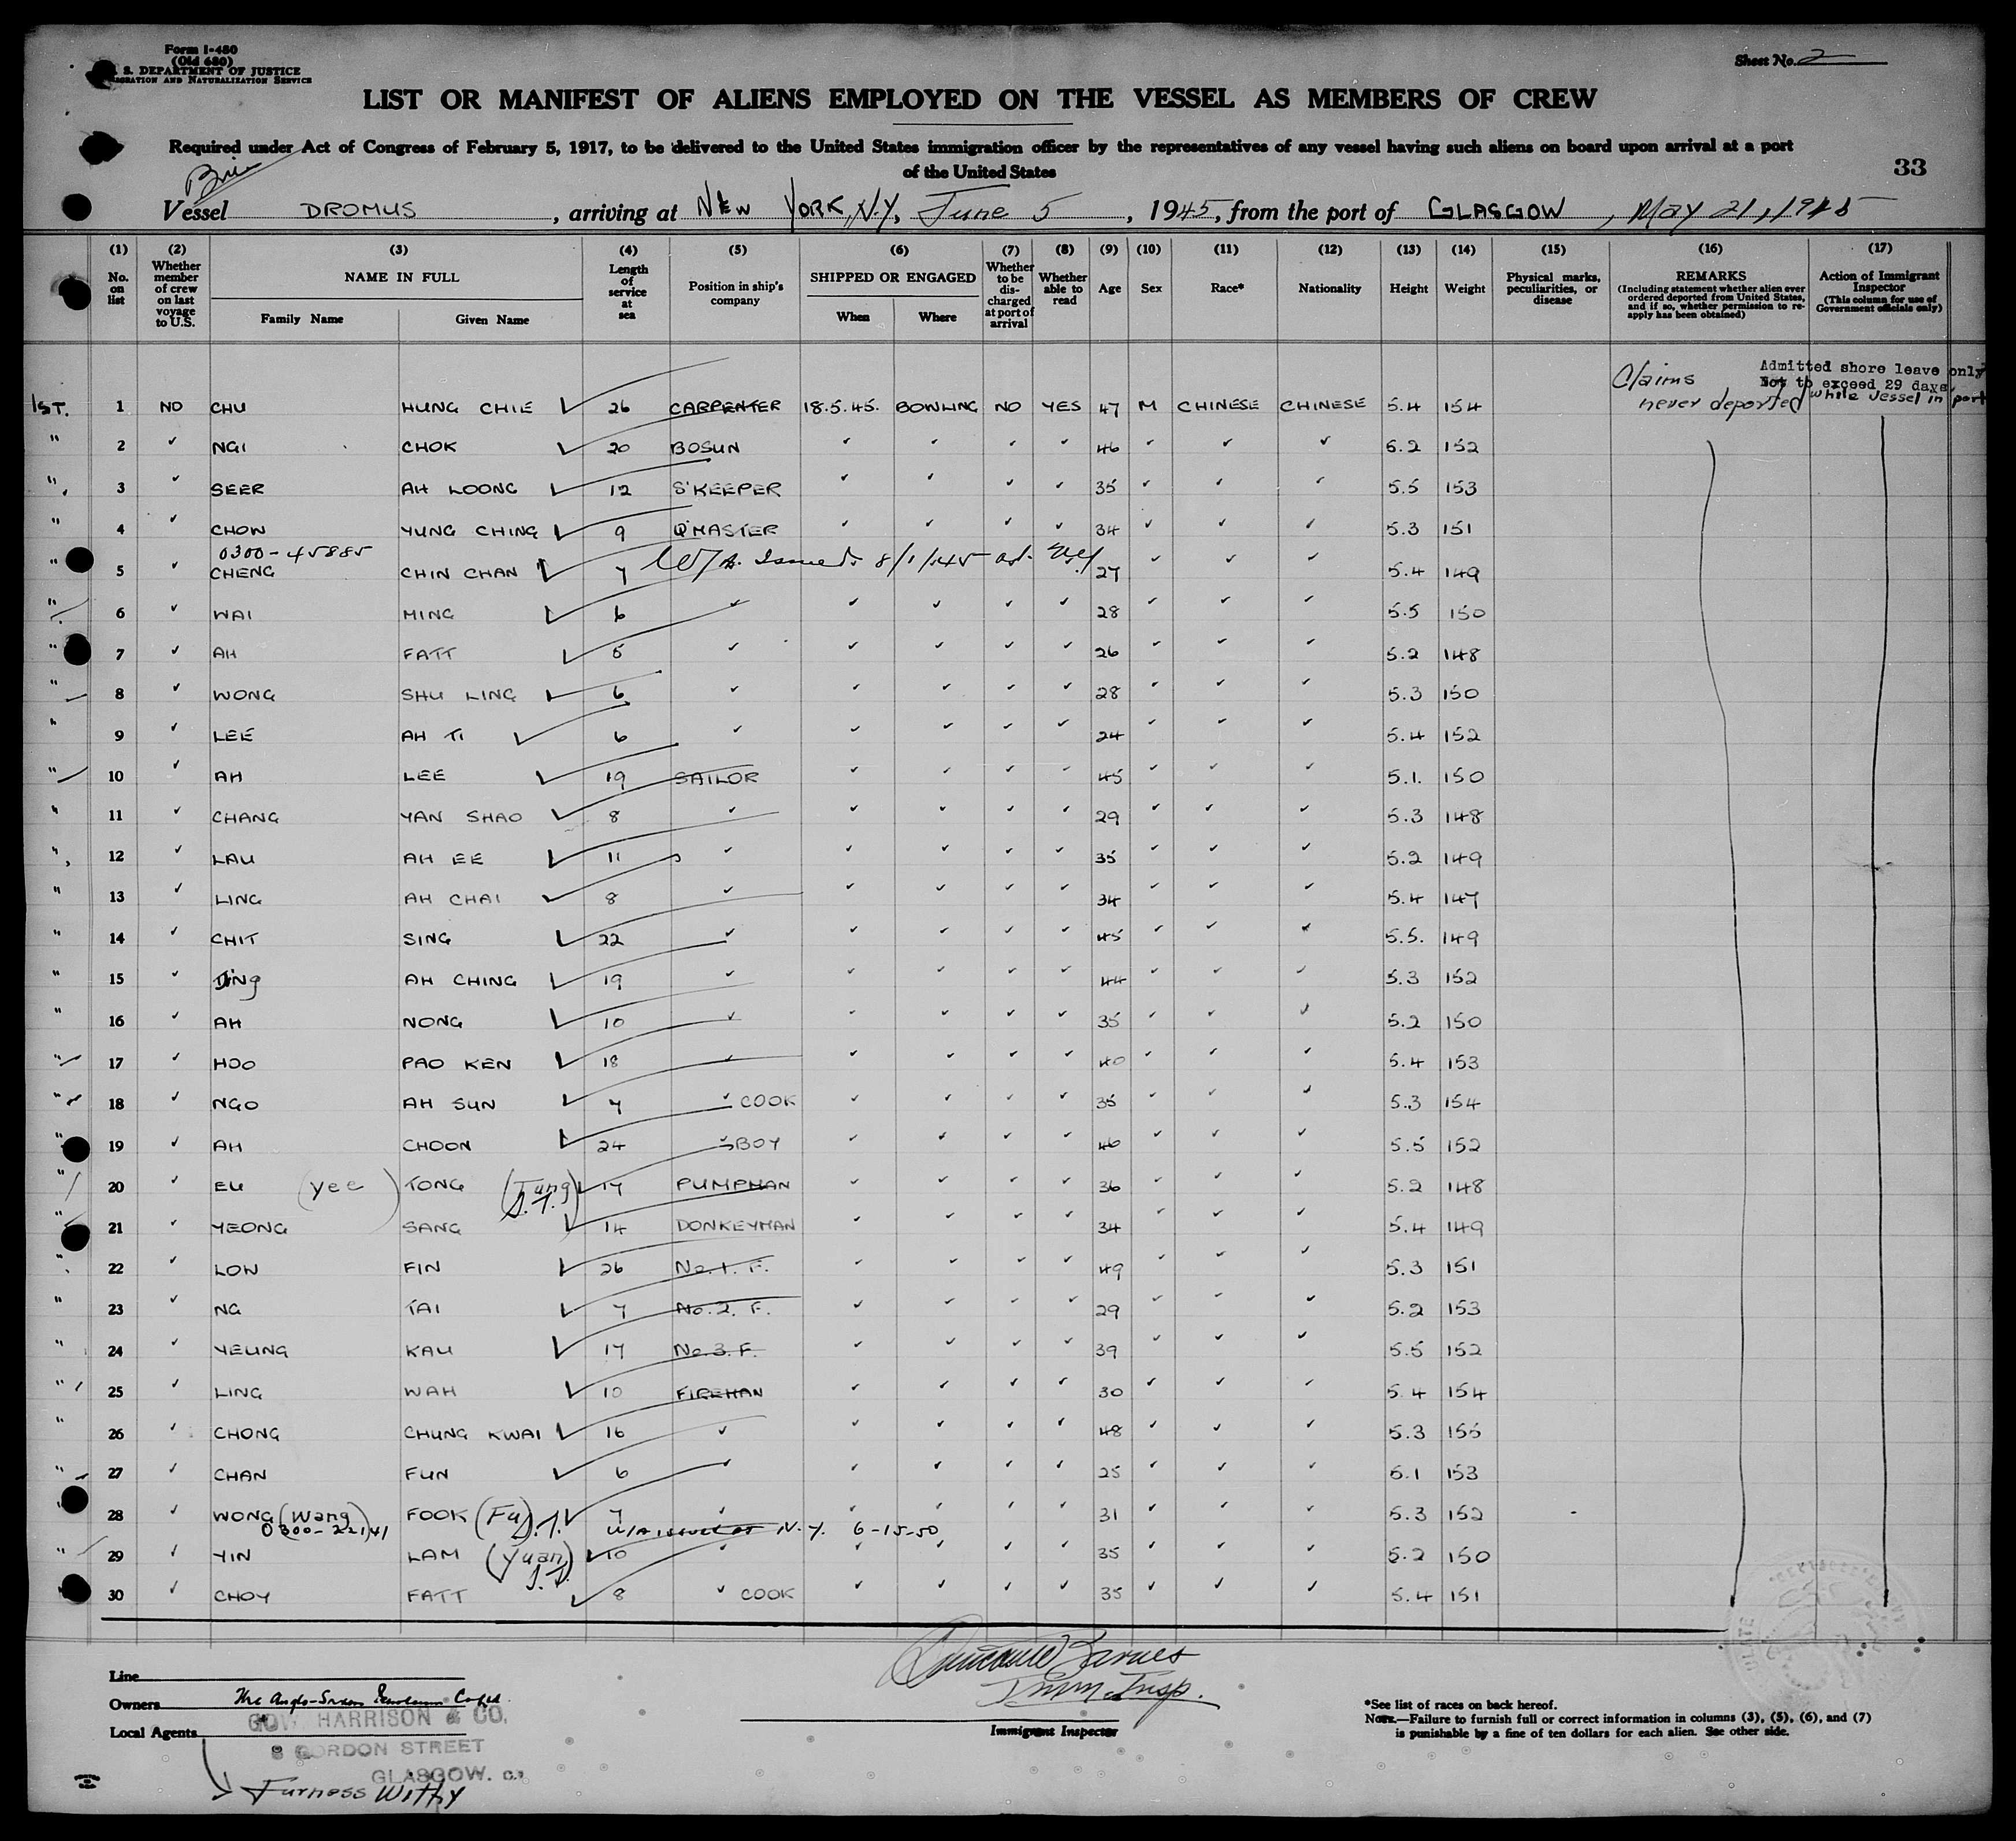 Form I-480
(Old 680)
S. DEPARTMENT OF JUSTICE
IMMIGRATION AND NATURALIZATION SERVICE
Sheet No. 2
LIST OR MANIFEST OF ALIENS EMPLOYED ON THE VESSEL AS MEMBERS OF CREW
Required under Act of Congress of February 5, 1917, to be delivered to the United States immigration officer by the representatives of any vessel having such aliens on board upon arrival at a port
of the United States
33
Vessel DROMUS, arriving at NEW YORK, N.Y., June 5, 1945, from the port of GLASGOW, May 21, 1945
(1) No. on list
(2) Whether member of crew on last voyage to U.S.
(3) NAME IN FULL Family Name Given Name
(4) Length of service at sea
(5) Position in ship's company
(6) SHIPPED OR ENGAGED When Where
(7) Whether to be discharged at port of arrival
(8) Whether able to read
(9) Age
(10) Sex
(11) Race*
(12) Nationality
(13) Height
(14) Weight
(15) Physical marks, peculiarities, or disease
(16) REMARKS (Including statement whether alien ever ordered deported from United States, and if so, whether permission to reapply has been obtained)
(17) Action of Immigrant Inspector (This column for use of Government officials only)
Claims never deported
Admitted shore leave only
Not to exceed 29 days,
while vessel in port
1ST. 1 NO CHU HUNG CHIE ✓ 26 CARPENTER 18.5.45. BOWLING NO YES 47 M CHINESE CHINESE 5.4 154
" 2 ✓ NGI CHOK ✓ 20 BOSUN ✓ ✓ ✓ ✓ 46 ✓ ✓ ✓ 5.2 152
" 3 ✓ SEER AH LOONG ✓ 12 S'KEEPER ✓ ✓ ✓ ✓ 35 ✓ ✓ ✓ 5.5 153
" 4 ✓ CHOW YUNG CHING ✓ 9 Q'MASTER ✓ ✓ ✓ ✓ 34 ✓ ✓ ✓ 5.3 151
0300-45885
" 5 ✓ CHENG CHIN CHAN ✓ 7 Issued 8/1/45 27 ✓ ✓ ✓ 5.4 149
" 6 ✓ WAI MING ✓ 6 ✓ ✓ ✓ ✓ ✓ 28 ✓ ✓ ✓ 5.5 150
" 7 ✓ AH FATT ✓ 5 ✓ ✓ ✓ ✓ ✓ 26 ✓ ✓ ✓ 5.2 148
" 8 ✓ WONG SHU LING ✓ 6 ✓ ✓ ✓ ✓ ✓ 28 ✓ ✓ ✓ 5.3 150
" 9 ✓ LEE AH TI ✓ 6 ✓ ✓ ✓ ✓ ✓ 24 ✓ ✓ ✓ 5.4 152
" 10 ✓ AH LEE ✓ 19 SAILOR ✓ ✓ ✓ ✓ 45 ✓ ✓ ✓ 5.1. 150
" 11 ✓ CHANG YAN SHAO ✓ 8 ✓ ✓ ✓ ✓ ✓ 29 ✓ ✓ ✓ 5.3 148
" 12 ✓ LAU AH EE ✓ 11 ✓ ✓ ✓ ✓ ✓ 35 ✓ ✓ ✓ 5.2 149
" 13 ✓ LING AH CHAI ✓ 8 ✓ ✓ ✓ ✓ ✓ 34 ✓ ✓ ✓ 5.4 147
" 14 ✓ CHIT SING ✓ 22 ✓ ✓ ✓ ✓ ✓ 45 ✓ ✓ ✓ 5.5. 149
" 15 ✓ Ding AH CHING ✓ 19 ✓ ✓ ✓ ✓ ✓ 44 ✓ ✓ ✓ 5.3 152
" 16 ✓ AH NONG ✓ 10 ✓ ✓ ✓ ✓ ✓ 35 ✓ ✓ ✓ 5.2 150
" 17 ✓ HOO PAO KEN ✓ 18 ✓ ✓ ✓ ✓ ✓ 40 ✓ ✓ ✓ 5.4 153
" 18 ✓ NGO AH SUN ✓ 7 ✓ COOK ✓ ✓ ✓ ✓ 35 ✓ ✓ ✓ 5.3 154
" 19 ✓ AH CHOON ✓ 24 ✓ BOY ✓ ✓ ✓ ✓ 46 ✓ ✓ ✓ 5.5 152
" 20 ✓ EU (Yee) TONG (Tung) S.T. ✓ 17 PUMPMAN ✓ ✓ ✓ ✓ 36 ✓ ✓ ✓ 5.2 148
" 21 ✓ YEONG SANG ✓ 14 DONKEYMAN ✓ ✓ ✓ ✓ 34 ✓ ✓ ✓ 5.4 149
" 22 ✓ LOW FIN ✓ 26 No. 1. F. ✓ ✓ ✓ ✓ 49 ✓ ✓ ✓ 5.3 151
" 23 ✓ NG TAI ✓ 7 No. 2. F. ✓ ✓ ✓ ✓ 29 ✓ ✓ ✓ 5.2 153
" 24 ✓ YEUNG KAU ✓ 17 No. 3. F. ✓ ✓ ✓ ✓ 39 ✓ ✓ ✓ 5.5 152
" 25 ✓ LING WAH ✓ 10 FIREMAN ✓ ✓ ✓ ✓ 30 ✓ ✓ ✓ 5.4 154
" 26 ✓ CHONG CHUNG KWAI ✓ 16 ✓ ✓ ✓ ✓ ✓ 48 ✓ ✓ ✓ 5.3 155
" 27 ✓ CHAN FUN ✓ 6 ✓ ✓ ✓ ✓ ✓ 25 ✓ ✓ ✓ 5.1 153
" 28 ✓ WONG (Wang) FOOK (Fu) S.T. ✓ 7 ✓ ✓ ✓ ✓ ✓ 31 ✓ ✓ ✓ 5.3 152
0300-22141 W/A issued at N.Y. 6-15-50
" 29 ✓ YIN LAM (Yuan) S.T. ✓ 10 ✓ ✓ ✓ ✓ ✓ 35 ✓ ✓ ✓ 5.2 150
30 ✓ CHOY FATT ✓ 8 ✓ COOK ✓ ✓ ✓ ✓ 35 ✓ ✓ ✓ 5.4 151
Imm. Insp.
Immigrant Inspector
Line
Owners The Anglo-Saxon Petroleum Co Ltd.
Local Agents
GOW, HARRISON & CO.
8 GORDON STREET
GLASGOW. C.1.
Furness Withy
*See list of races on back hereof.
NOTE.—Failure to furnish full or correct information in columns (3), (5), (6), and (7)
is punishable by a fine of ten dollars for each alien. See other side.